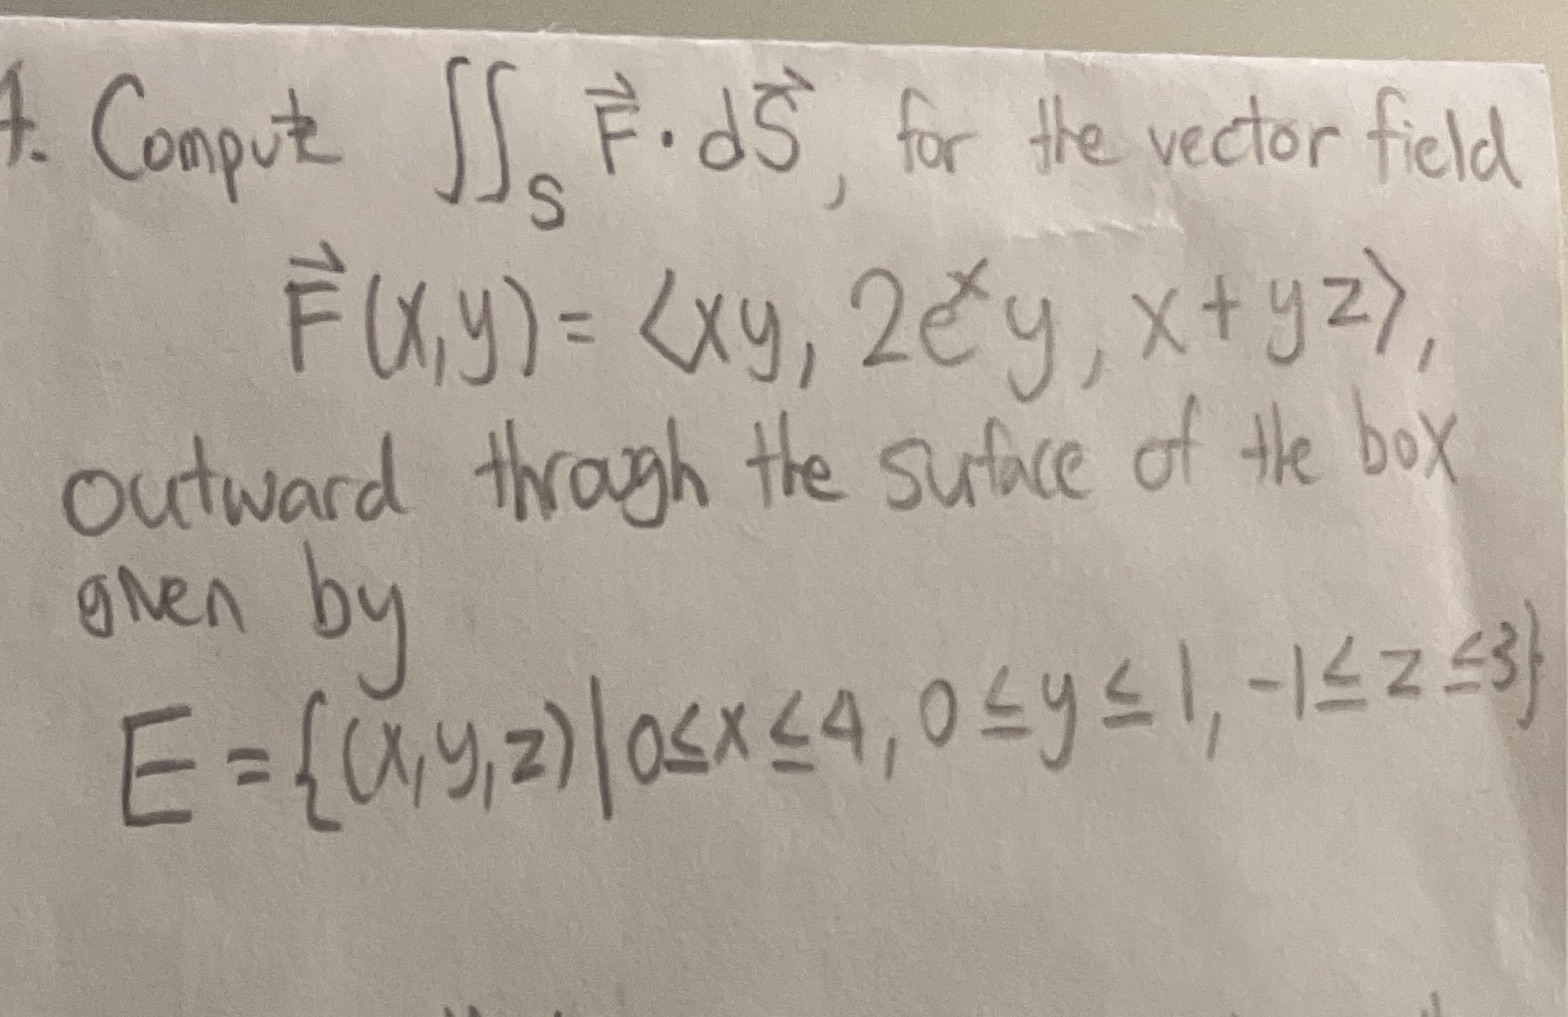 4. Compute ∬_S F⃗ · dS⃗, for the vector field
F⃗(x,y) = ⟨xy, 2eˣy, x+yz⟩,
outward through the surface of the box
given by
E = {(x,y,z) | 0≤x≤4, 0≤y≤1, -1≤z≤3}